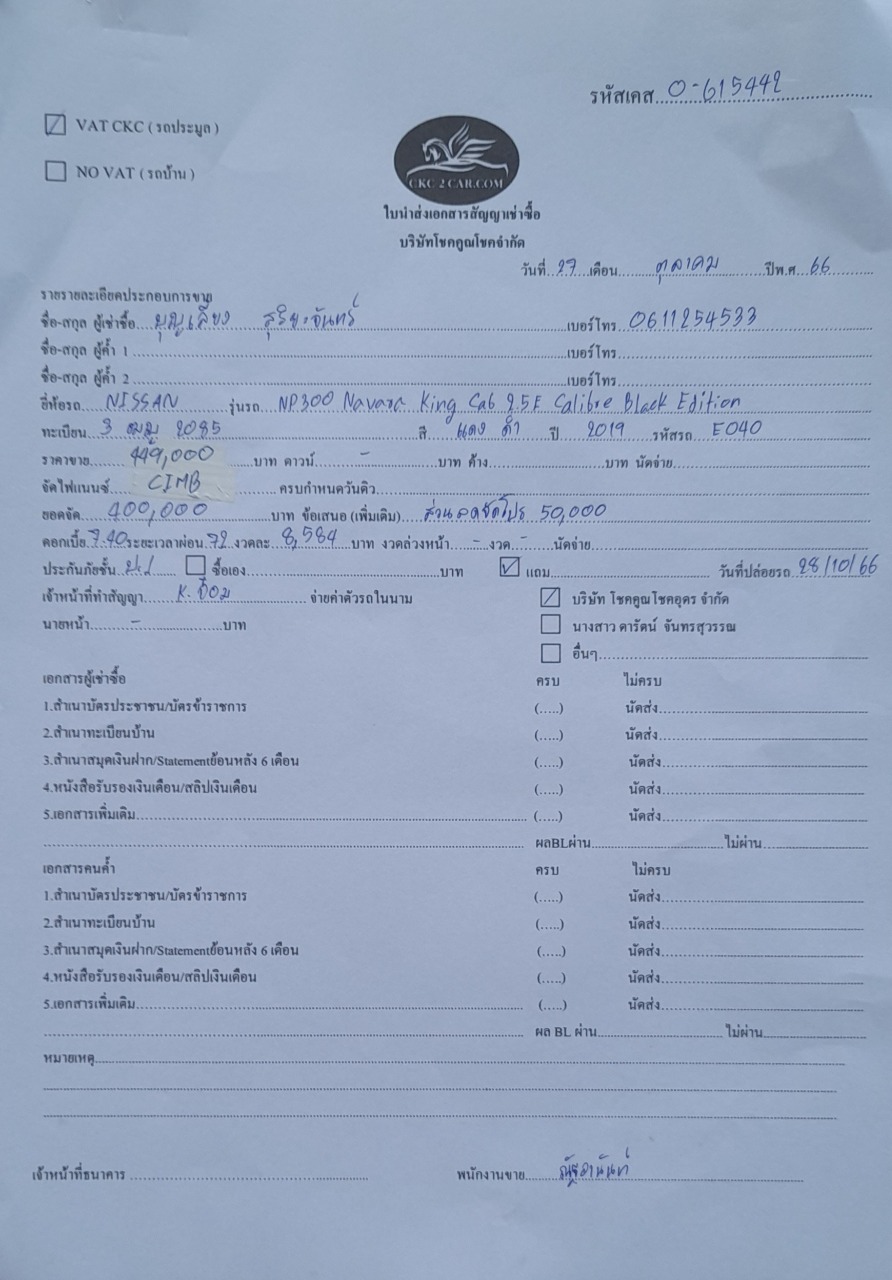 รหัสเคส 0-615442
VAT CKC ( รถประมูล )
NO VAT ( รถบ้าน )
CKC 2 CAR.COM
ใบนำส่งเอกสารสัญญาเช่าซื้อ
บริษัทโชคคูณโชคจำกัด
วันที่ 27 เดือน ตุลาคม ปีพ.ศ 66
รายรายละเอียดประกอบการขาย
ชื่อ-สกุล ผู้เช่าซื้อ บุญเลี้ยง สุริยะจันทร์ เบอร์โทร 0611254533
ชื่อ-สกุล ผู้ค้ำ 1 เบอร์โทร
ชื่อ-สกุล ผู้ค้ำ 2 เบอร์โทร
ยี่ห้อรถ NISSAN รุ่นรถ NP300 Navara King Cab 2.5E Calibre Black Edition
ทะเบียน 3 ฒฒ 2085 สี แดง ดำ ปี 2019 รหัสรถ E040
ราคาขาย 449,000 บาท ดาวน์ - บาท ค้าง บาท นัดจ่าย
จัดไฟแนนซ์ CIMB ครบกำหนดวันคิว
ยอดจัด 400,000 บาท ข้อเสนอ (เพิ่มเติม) ส่วนลดจัดโปร 50,000
ดอกเบี้ย 7.40 ระยะเวลาผ่อน 72 งวดละ 8,584 บาท งวดล่วงหน้า - งวด - นัดจ่าย
ประกันภัยชั้น ซื้อเอง บาท แถม วันที่ปล่อยรถ 28/10/66
เจ้าหน้าที่ทำสัญญา K. จ่ายค่าตัวรถในนาม บริษัท โชคคูณโชคอุดร จำกัด
นายหน้า - บาท นางสาว ดารัตน์ จันทรสุวรรณ
อื่นๆ
เอกสารผู้เช่าซื้อ ครบ ไม่ครบ
1.สำเนาบัตรประชาชน/บัตรข้าราชการ (.....) นัดส่ง
2.สำเนาทะเบียนบ้าน (.....) นัดส่ง
3.สำเนาสมุดเงินฝาก/Statementย้อนหลัง 6 เดือน (.....) นัดส่ง
4.หนังสือรับรองเงินเดือน/สลิปเงินเดือน (.....) นัดส่ง
5.เอกสารเพิ่มเติม (.....) นัดส่ง
ผลBLผ่าน ไม่ผ่าน
เอกสารคนค้ำ ครบ ไม่ครบ
1.สำเนาบัตรประชาชน/บัตรข้าราชการ (.....) นัดส่ง
2.สำเนาทะเบียนบ้าน (.....) นัดส่ง
3.สำเนาสมุดเงินฝาก/Statementย้อนหลัง 6 เดือน (.....) นัดส่ง
4.หนังสือรับรองเงินเดือน/สลิปเงินเดือน (.....) นัดส่ง
5.เอกสารเพิ่มเติม (.....) นัดส่ง
ผล BL ผ่าน ไม่ผ่าน
หมายเหตุ
เจ้าหน้าที่ธนาคาร พนักงานขาย ณัฐอานันท์